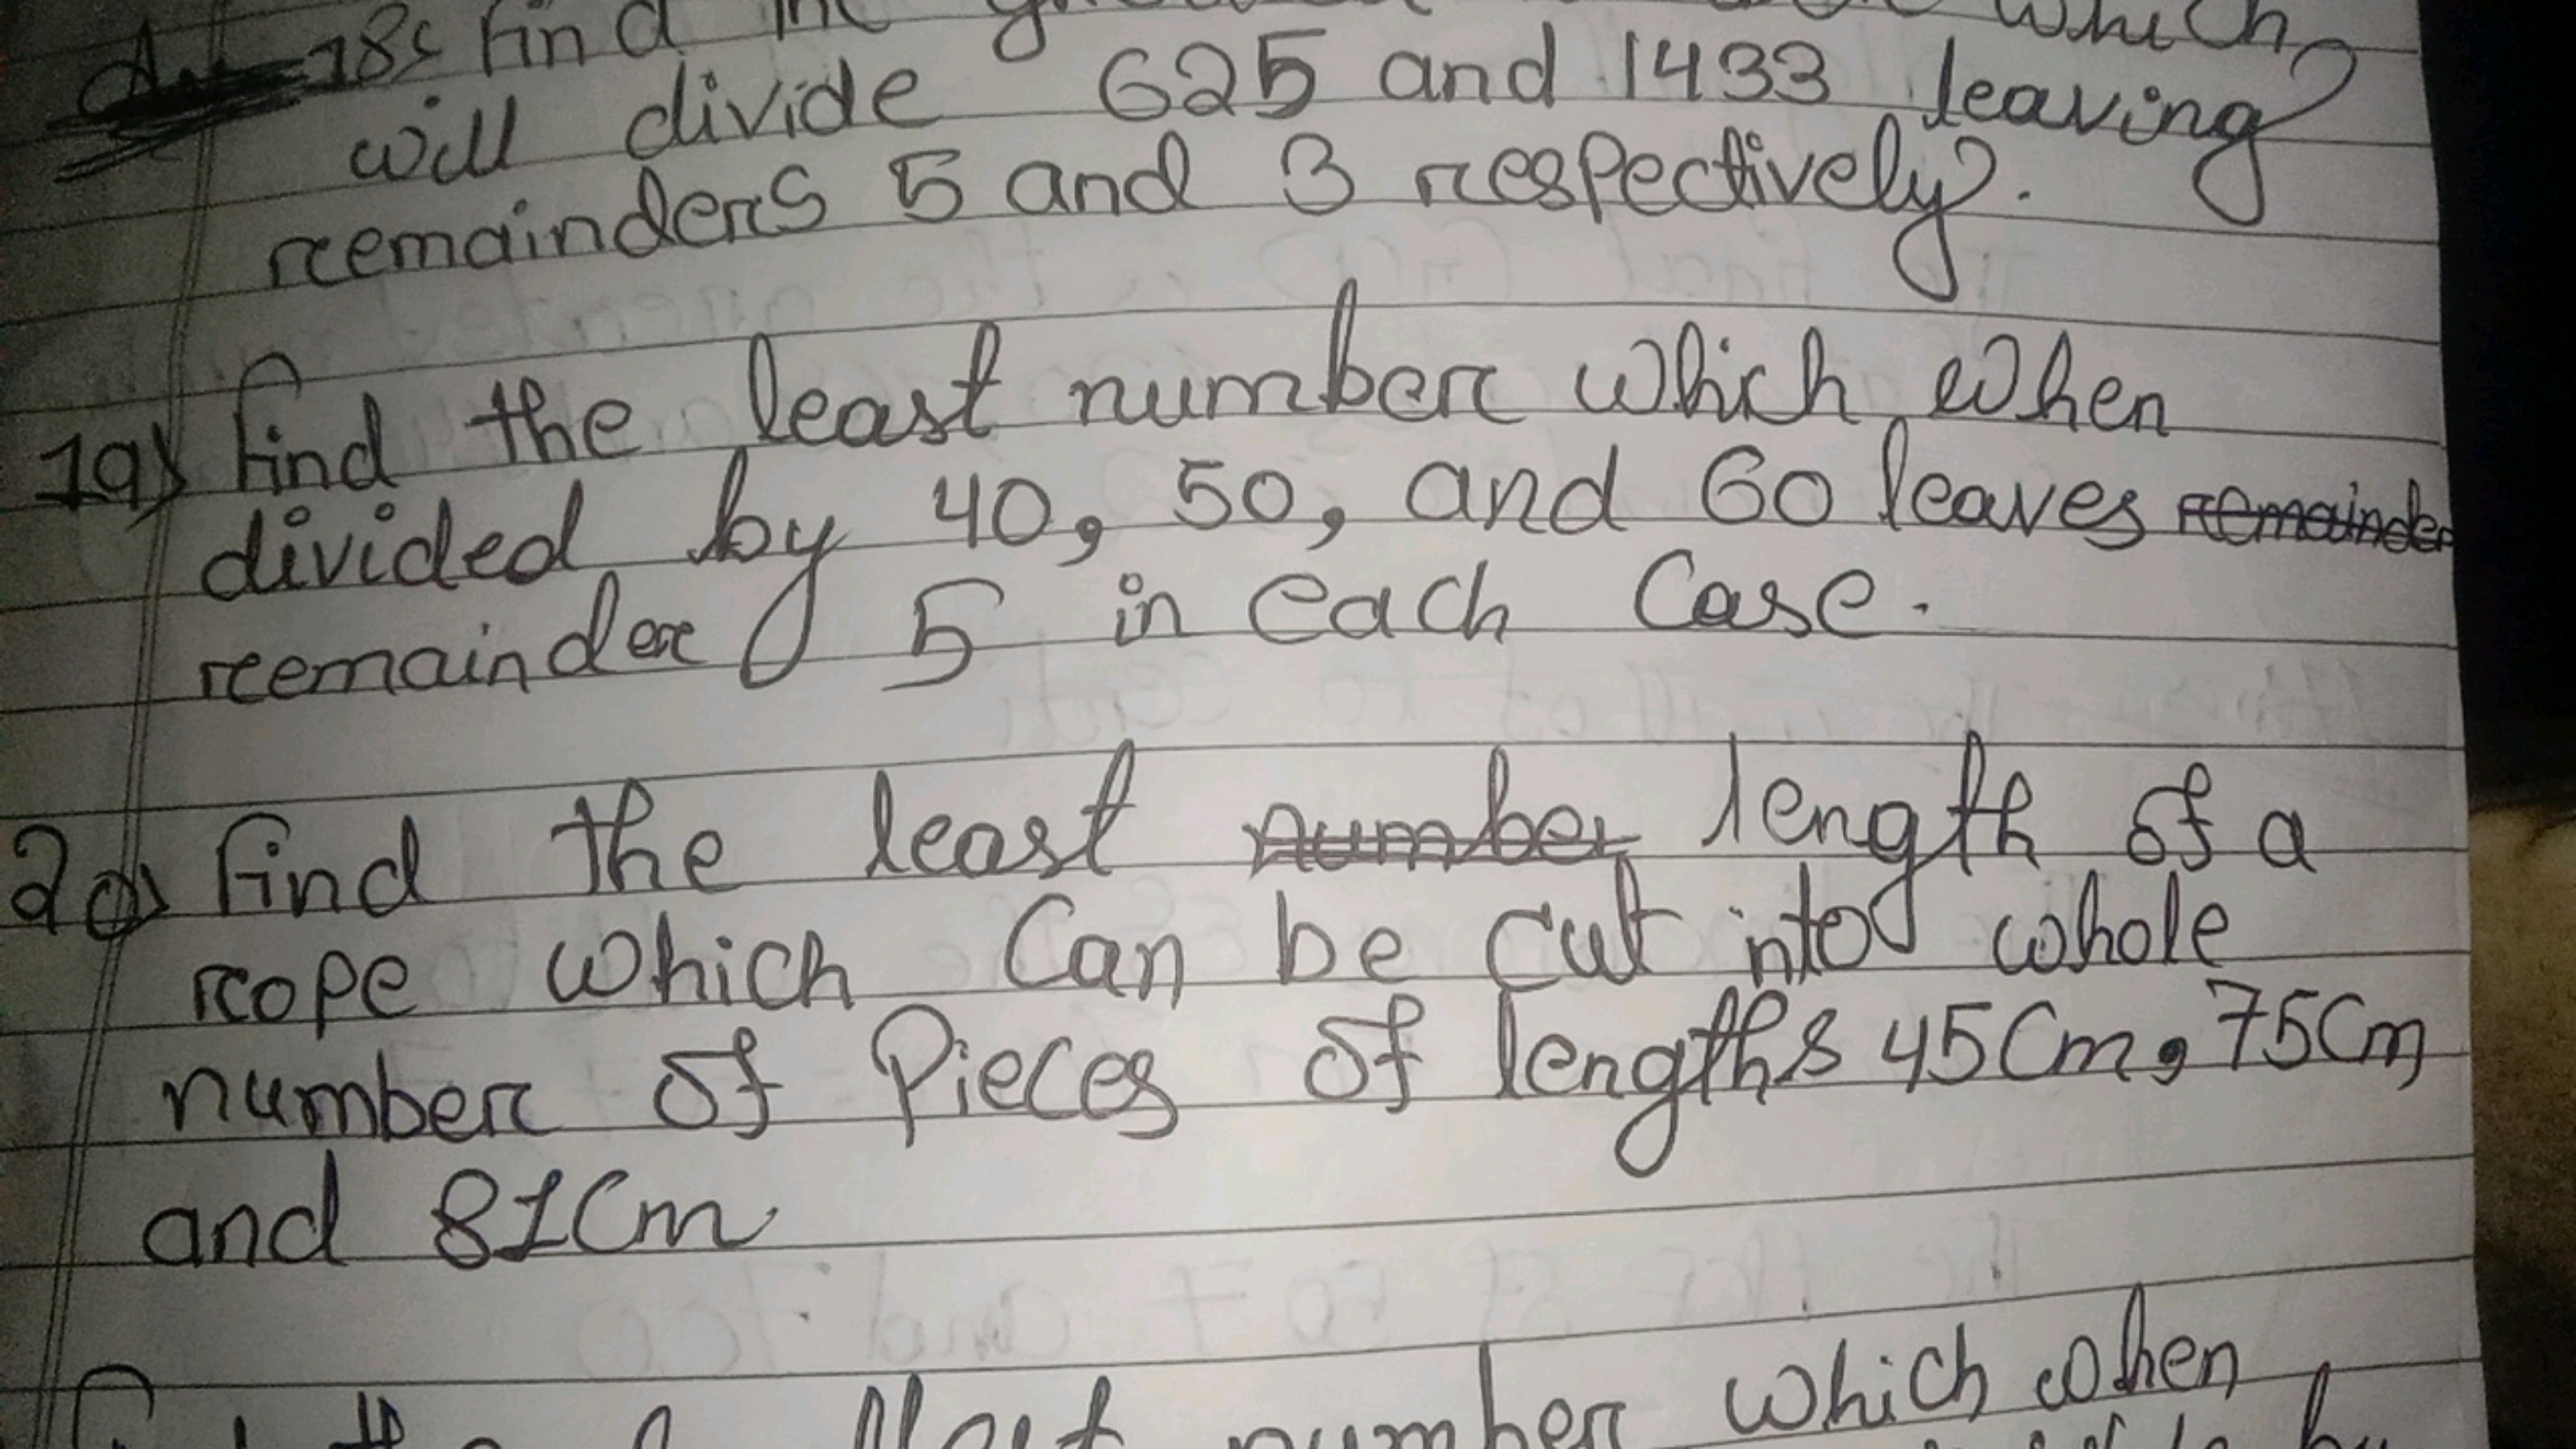 18c find the which
will divide 625 and 1433 leaving
remainders 5 and 3 respectively.
19) find the least number which when
divided by 40, 50, and 60 leaves remainder
remainder 5 in each case.
20) find the least number length of a
rope which can be cut into whole
number of Pieces of lengths 45Cm, 75Cm
and 81Cm
number which when